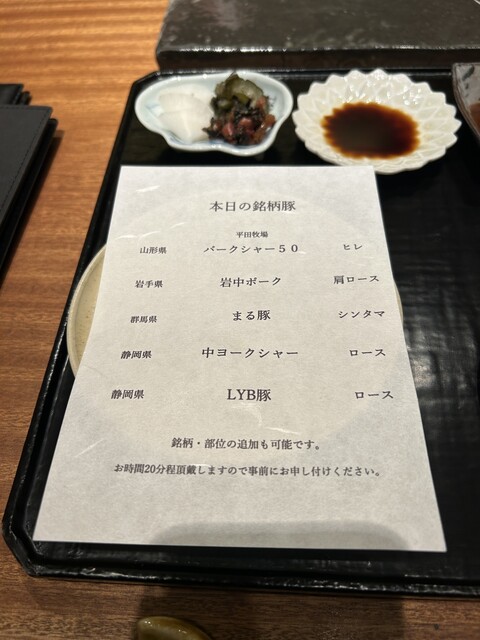 本日の銘柄豚
平田牧場
山形県 バークシャー５０ ヒレ
岩手県 岩中ポーク 肩ロース
群馬県 まる豚 シンタマ
静岡県 中ヨークシャー ロース
静岡県 LYB豚 ロース
銘柄・部位の追加も可能です。
お時間20分程頂戴しますので事前にお申し付けください。